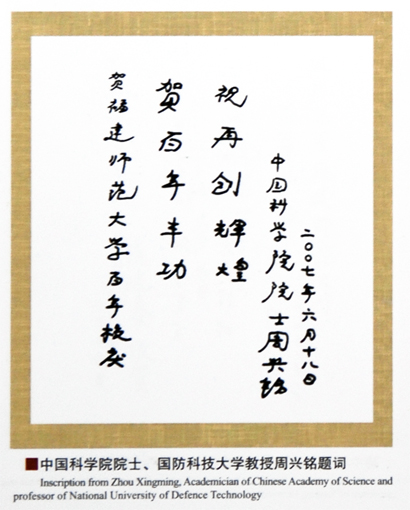 贺福建师范大学百年校庆
贺百年丰功
祝再创辉煌
中国科学院院士周兴铭
二〇〇七年六月十八日
■中国科学院院士、国防科技大学教授周兴铭题词
Inscription from Zhou Xingming, Academician of Chinese Academy of Science and
professor of National University of Defence Technology